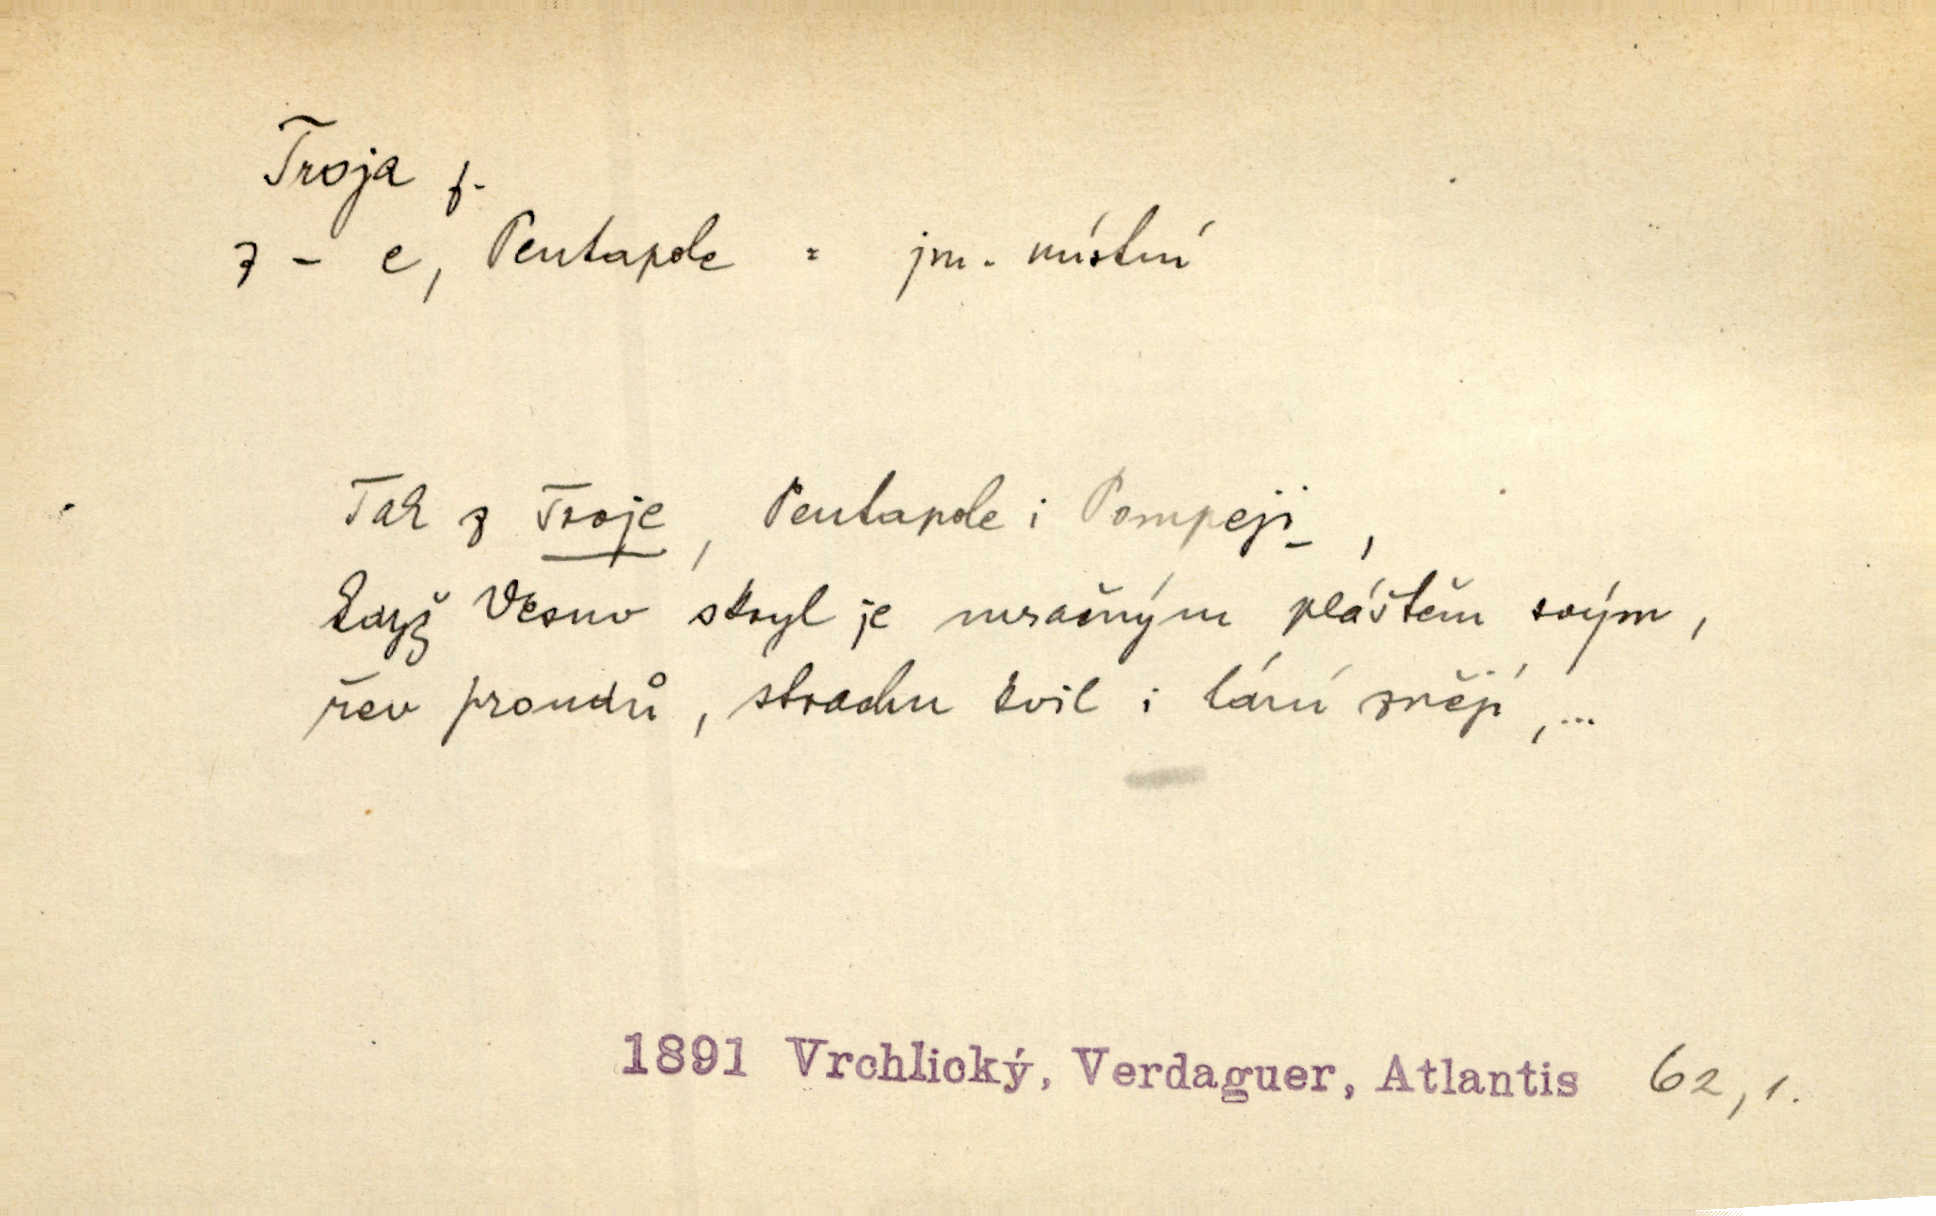 Troja f.
z - e, Pentapole = jm. místní
Tak z Troje, Pentapole i Pompeji,
když Vesuv skryl je mračným pláštěm svým,
řev proudů, strachu kvil i lání znějí,...
1891 Vrchlický, Verdaguer, Atlantis 62,1.